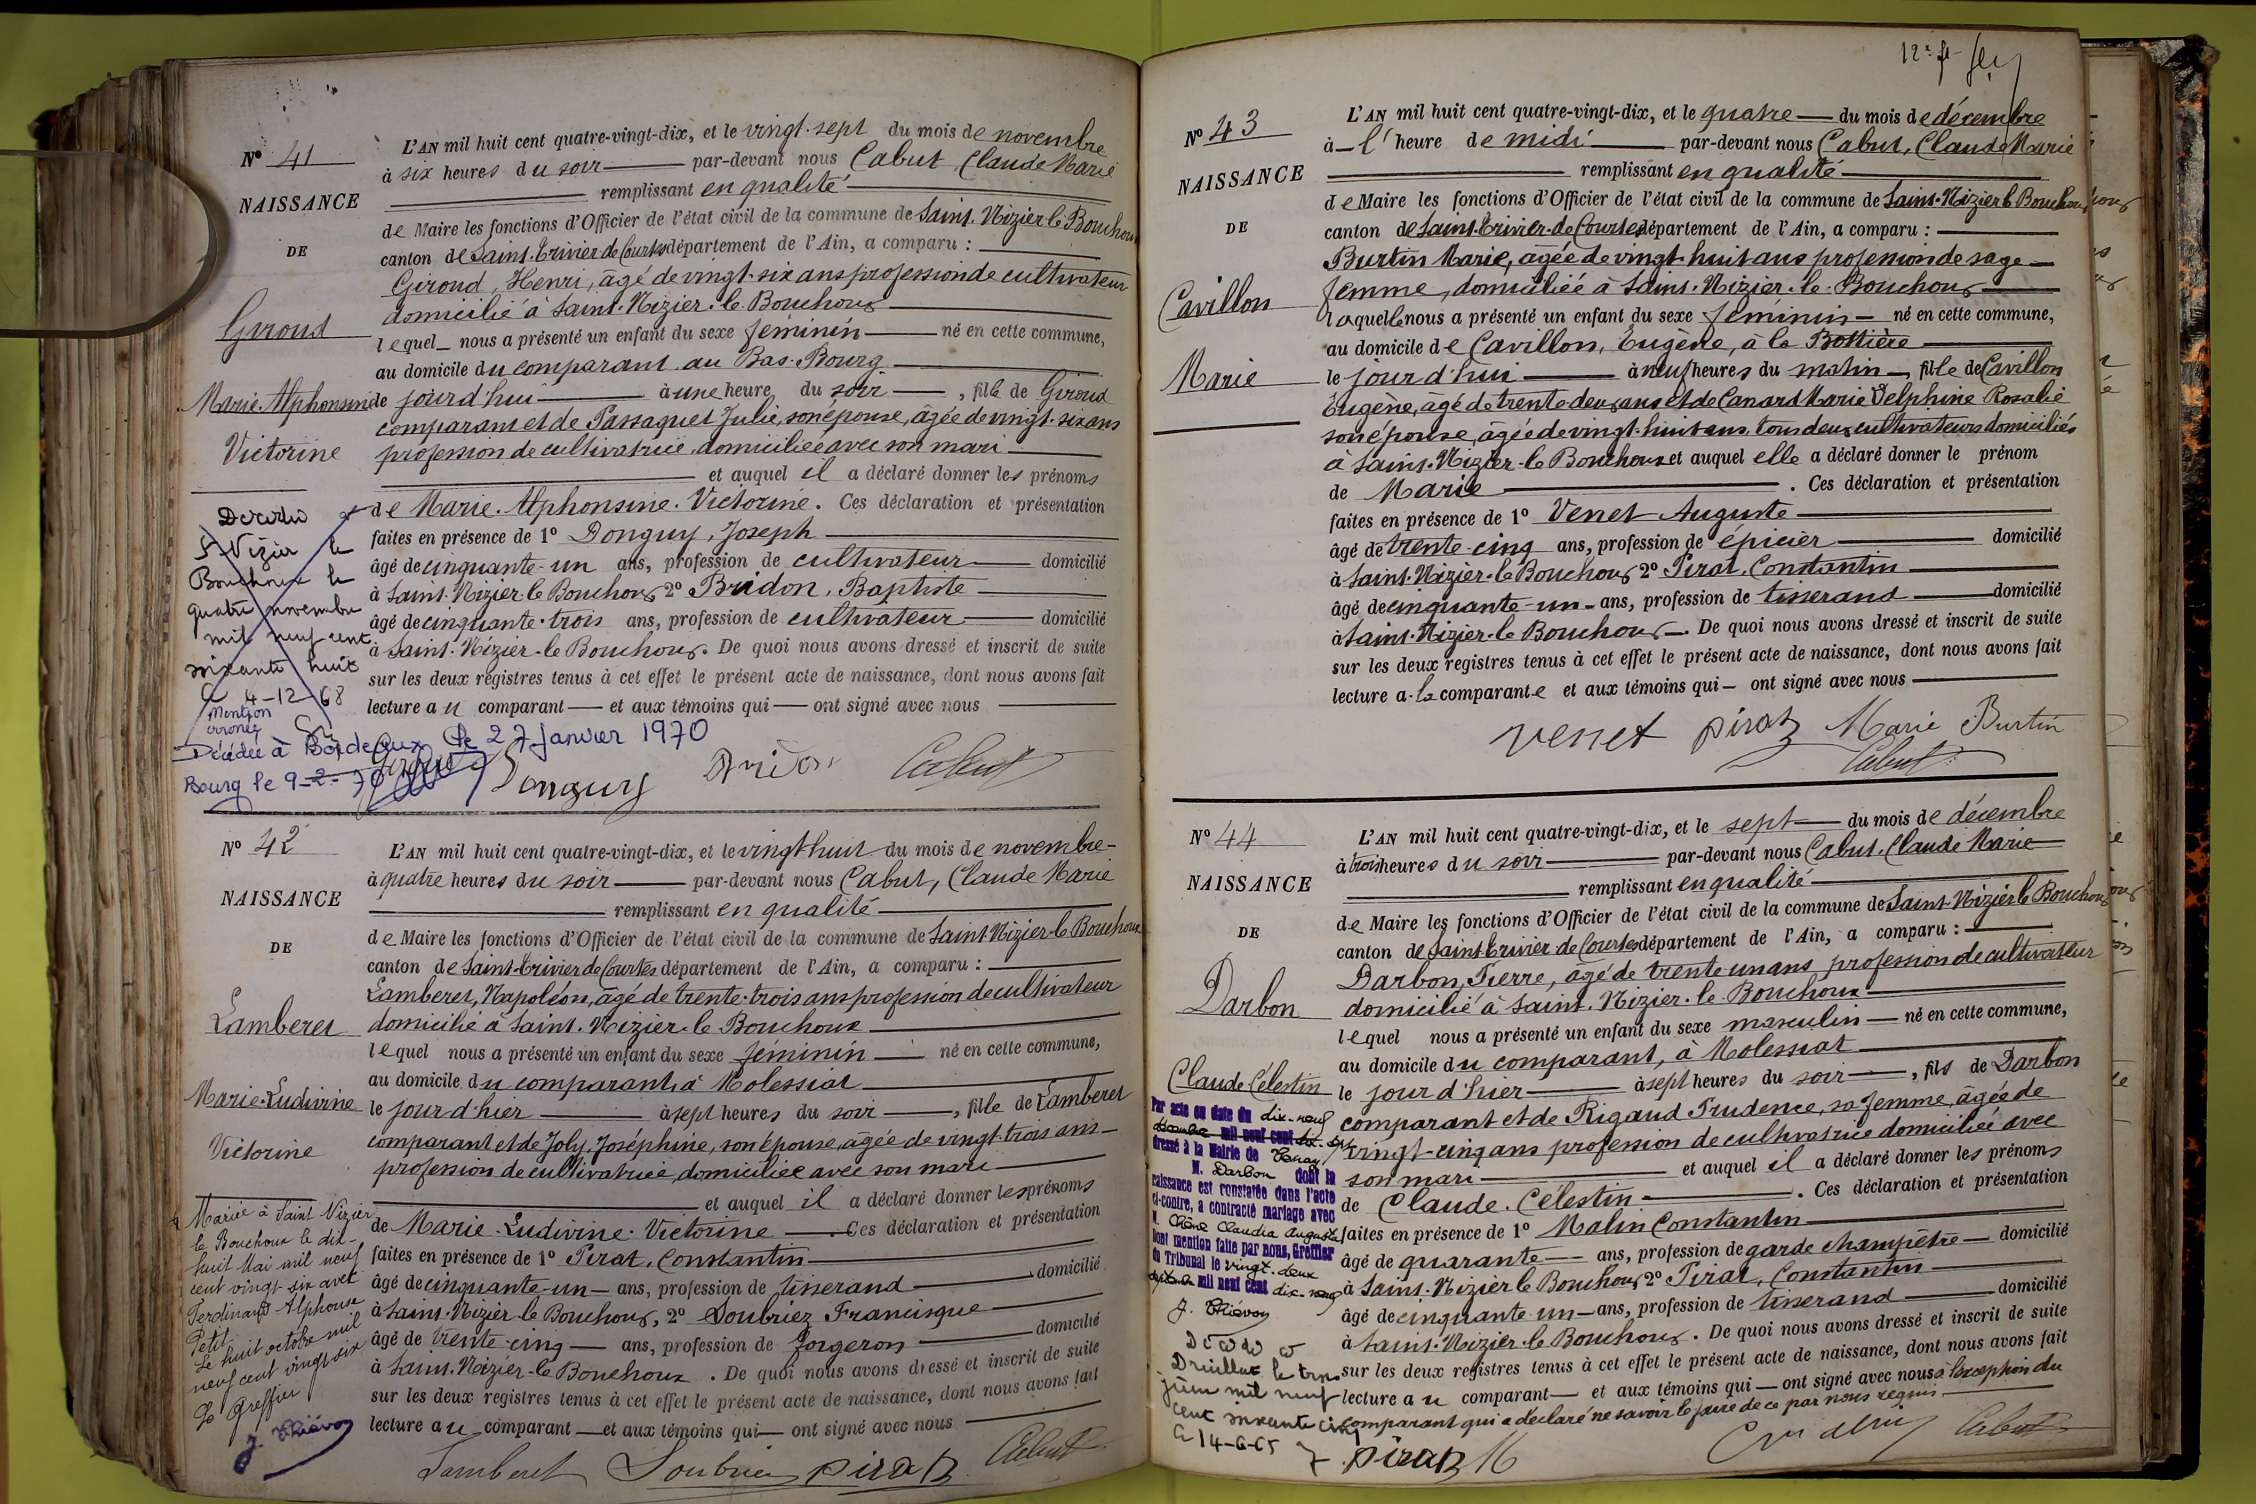 N° 41
NAISSANCE
DE
Giroud
Marie-Alphonsine
Victorine
L'AN mil huit cent quatre-vingt-dix, et le vingt-sept du mois de novembre
à six heures du soir par-devant nous Cabut, Claude Marie
remplissant en qualité
de Maire les fonctions d'Officier de l'état civil de la commune de Saint-Nizier-le-Bouchoux
canton de Saint-Trivier-de-Courtes département de l'Ain, a comparu :
Giroud, Henri, âgé de vingt-six ans profession de cultivateur
domicilié à Saint-Nizier-le-Bouchoux
lequel nous a présenté un enfant du sexe féminin né en cette commune,
au domicile du comparant au Bas-Bourg
le jour d'hui à une heure du soir, fille de Giroud
comparant et de Passaquet Julie, son épouse, âgée de vingt-six ans
profession de cultivatrice domiciliée avec son mari
et auquel il a déclaré donner les prénoms
de Marie-Alphonsine-Victorine. Ces déclaration et présentation
faites en présence de 1° Donguy, Joseph
âgé de cinquante-un ans, profession de cultivateur domicilié
à Saint-Nizier-le-Bouchoux 2° Bridon, Baptiste
âgé de cinquante-trois ans, profession de cultivateur domicilié
à Saint-Nizier-le-Bouchoux. De quoi nous avons dressé et inscrit de suite
sur les deux registres tenus à cet effet le présent acte de naissance, dont nous avons fait
lecture au comparant et aux témoins qui ont signé avec nous
Décédée
St Nizier le
Bouchoux le
quatre novembre
mil neuf cent
soixante huit
le 4-12-68
Mention
erronée
Décédée à Bordeaux le 27 janvier 1970
Bourg le 9-2-70
Giroud Donguy Bridon Cabut
N° 42
NAISSANCE
DE
Lamberet
Marie-Ludivine
Victorine
L'AN mil huit cent quatre-vingt-dix, et le vingt huit du mois de novembre
à quatre heures du soir par-devant nous Cabut, Claude Marie
remplissant en qualité
de Maire les fonctions d'Officier de l'état civil de la commune de Saint-Nizier-le-Bouchoux
canton de Saint-Trivier de Courtes département de l'Ain, a comparu :
Lamberet, Napoléon, âgé de trente-trois ans profession de cultivateur
domicilié à Saint-Nizier-le-Bouchoux
lequel nous a présenté un enfant du sexe féminin né en cette commune,
au domicile du comparant, à Molessiat
le jour d'hier à sept heures du soir, fille de Lamberet
comparant et de Joly, Joséphine, son épouse, âgée de vingt-trois ans
profession de cultivatrice, domiciliée avec son mari
et auquel il a déclaré donner les prénoms
de Marie-Ludivine-Victorine. Ces déclaration et présentation
faites en présence de 1° Pirat, Constantin
âgé de cinquante-un ans, profession de tisserand domicilié
à Saint-Nizier le Bouchoux, 2° Soubriez Francisque
âgé de trente-cinq ans, profession de forgeron domicilié
à Saint-Nizier-le-Bouchoux. De quoi nous avons dressé et inscrit de suite
sur les deux registres tenus à cet effet le présent acte de naissance, dont nous avons fait
lecture au comparant et aux témoins qui ont signé avec nous
Mariée à Saint Nizier
le Bouchoux le dix-
huit Mai mil neuf
cent vingt-six avec
Ferdinand Alphonse
Petit
Le huit octobre mil
neuf cent vingt six
Le Greffier
J. Thiévon
Lamberet Soubriez Pirat Cabut
N° 43
NAISSANCE
DE
Cavillon
Marie
L'AN mil huit cent quatre-vingt-dix, et le quatre du mois de décembre
à l'heure de midi par-devant nous Cabut, Claude Marie
remplissant en qualité
de Maire les fonctions d'Officier de l'état civil de la commune de Saint-Nizier le Bouchoux
canton de Saint-Trivier-de-Courtes département de l'Ain, a comparu :
Burtin Marie, âgée de vingt-huit ans profession de sage-
femme, domiciliée à Saint-Nizier-le-Bouchoux
laquelle nous a présenté un enfant du sexe féminin né en cette commune,
au domicile de Cavillon, Eugène, à la Bottière
le jour d'hui à neuf heures du matin, fille de Cavillon
Eugène, âgé de trente deux ans et de Canard Marie Delphine Rosalie
son épouse, âgée de vingt-huit ans, tous deux cultivateurs domiciliés
à Saint-Nizier-le Bouchoux et auquel elle a déclaré donner le prénom
de Marie. Ces déclaration et présentation
faites en présence de 1° Venet Auguste
âgé de trente-cinq ans, profession de épicier domicilié
à Saint-Nizier-le Bouchoux 2° Pirat, Constantin
âgé de cinquante-un ans, profession de tisserand domicilié
à Saint-Nizier-le Bouchoux. De quoi nous avons dressé et inscrit de suite
sur les deux registres tenus à cet effet le présent acte de naissance, dont nous avons fait
lecture à la comparante et aux témoins qui ont signé avec nous
Venet Pirat Marie Burtin
Cabut
N° 44
NAISSANCE
DE
Darbon
Claude-Célestin
L'AN mil huit cent quatre-vingt-dix, et le sept du mois de décembre
à trois heures du soir par-devant nous Cabut, Claude Marie
remplissant en qualité
de Maire les fonctions d'Officier de l'état civil de la commune de Saint-Nizier le Bouchoux
canton de Saint-Trivier-de-Courtes département de l'Ain, a comparu :
Darbon, Pierre, âgé de trente-un ans profession de cultivateur
domicilié à Saint-Nizier-le-Bouchoux
lequel nous a présenté un enfant du sexe masculin né en cette commune,
au domicile du comparant, à Molessiat
le jour d'hier à sept heures du soir, fils de Darbon
comparant et de Rigaud Prudence, sa femme, âgée de
vingt-cinq ans profession de cultivatrice domiciliée avec
son mari et auquel il a déclaré donner les prénoms
de Claude-Célestin. Ces déclaration et présentation
faites en présence de 1° Malin Constantin
âgé de quarante ans, profession de garde champêtre domicilié
à Saint-Nizier le Bouchoux 2° Pirat, Constantin
âgé de cinquante-un ans, profession de tisserand domicilié
à Saint-Nizier-le Bouchoux. De quoi nous avons dressé et inscrit de suite
sur les deux registres tenus à cet effet le présent acte de naissance, dont nous avons fait
lecture au comparant et aux témoins qui ont signé avec nous à l'exception du
comparant qui a déclaré ne savoir le faire de ce par nous requis
Par acte en date du dix-neuf
mil neuf cent dix-
dressé à la Mairie de Tenay
M. Darbon dont la
naissance est constatée dans l'acte
ci-contre, a contracté mariage avec
M. Chêne Claudia Augusta
Dont mention faite par nous, Greffier
du Tribunal le vingt-deux
septembre mil neuf cent dix-neuf
J. Thiévon
Décédé à
Druillat le trois
juin mil neuf
cent soixante cinq
le 14-6-65
Pirat Cabut